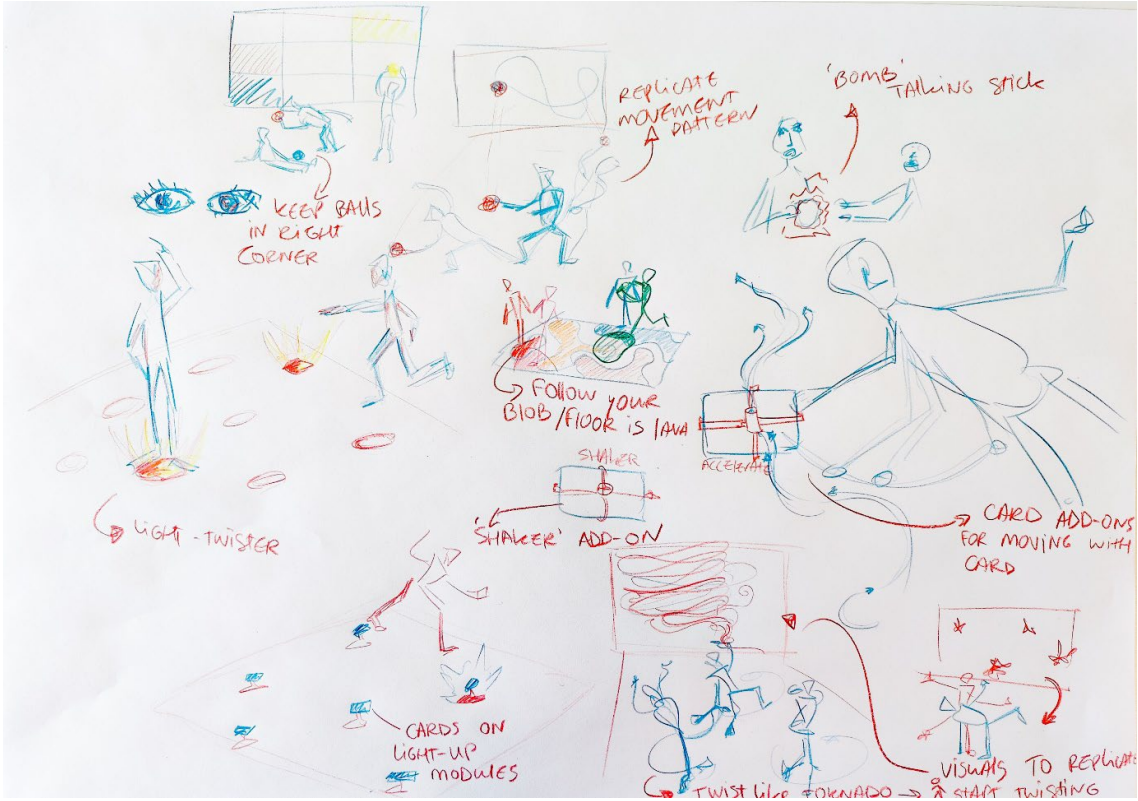 REPLICATE
MOVEMENT
PATTERN
'BOMB'
TALKING STICK
KEEP BALLS
IN RIGHT
CORNER
FOLLOW YOUR
BLOB/FLOOR IS LAVA
ACCELERATE
SHAKER
'SHAKER' ADD-ON
LIGHT-TWISTER
CARD ADD-ONS
FOR MOVING WITH
CARD
CARDS ON
LIGHT-UP
MODULES
VISUALS TO REPLICATE
TWIST LIKE TORNADO → START TWISTING